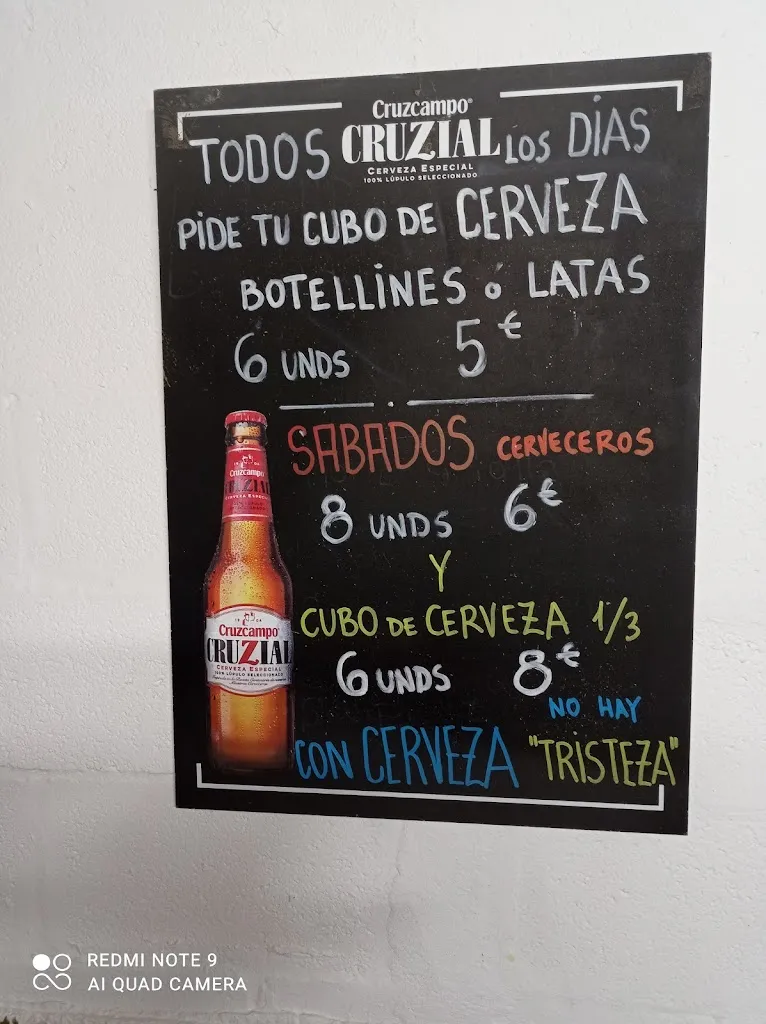 Cruzcampo®
TODOS CRUZIAL LOS DÍAS
CERVEZA ESPECIAL
100% LÚPULO SELECCIONADO
PIDE TU CUBO DE CERVEZA
BOTELLINES ó LATAS
6 UNDS 5€
SABADOS CERVECEROS
8 UNDS 6€
Y
CUBO DE CERVEZA 1/3
6 UNDS 8€
NO HAY
CON CERVEZA "TRISTEZA"
Cruzcampo
CRUZIAL
CERVEZA ESPECIAL
Cruzcampo
CRUZIAL
CERVEZA ESPECIAL
100% LÚPULO SELECCIONADO
REDMI NOTE 9
AI QUAD CAMERA